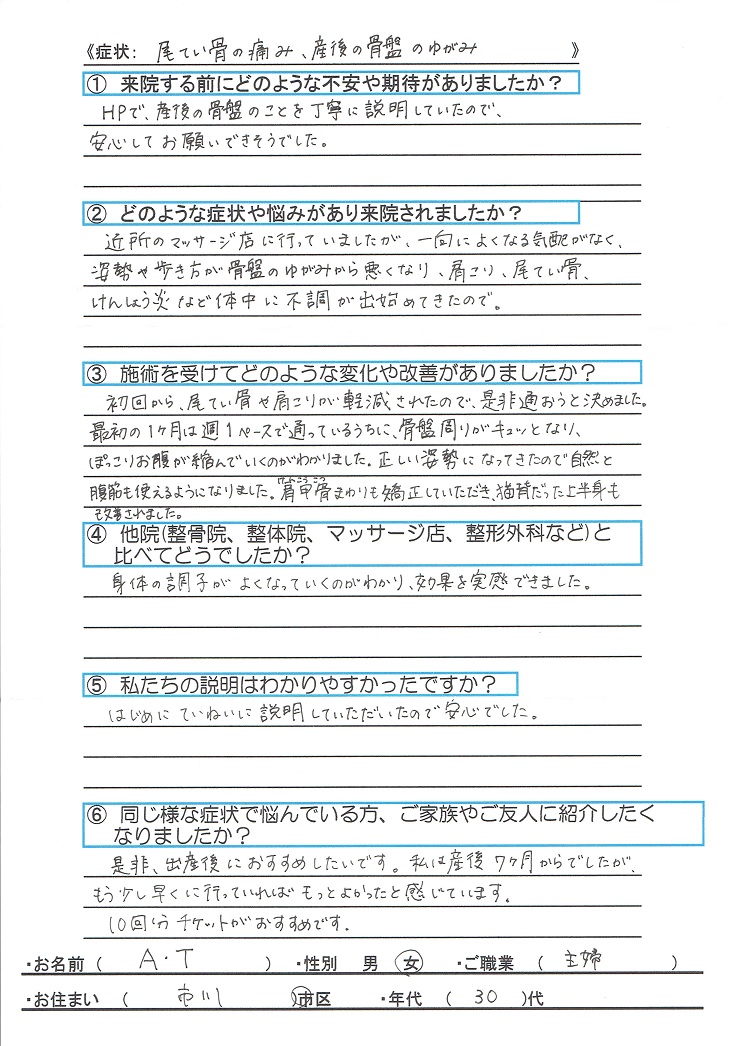 《症状: 尾てい骨の痛み、産後の骨盤のゆがみ 》
① 来院する前にどのような不安や期待がありましたか？
HPで、産後の骨盤のことを丁寧に説明していたので、
安心してお願いできそうでした。
② どのような症状や悩みがあり来院されましたか？
近所のマッサージ店に行っていましたが、一向によくなる気配がなく、
姿勢や歩き方が骨盤のゆがみから悪くなり、肩こり、尾てい骨、
けんしょう炎など体中に不調が出始めてきたので。
③ 施術を受けてどのような変化や改善がありましたか？
初回から、尾てい骨や肩こりが軽減されたので、是非通おうと決めました。
最初の1ヶ月は週1ペースで通っているうちに、骨盤周りがキュッとなり、
ぽっこりお腹が縮んでいくのがわかりました。正しい姿勢になってきたので自然と
腹筋も使えるようになりました。肩甲骨まわりも矯正していただき、猫背だった上半身も
改善されました。
④ 他院(整骨院、整体院、マッサージ店、整形外科など)と
比べてどうでしたか？
身体の調子がよくなっていくのがわかり、効果を実感できました。
⑤ 私たちの説明はわかりやすかったですか？
はじめにていねいに説明していただいたので安心でした。
⑥ 同じ様な症状で悩んでいる方、ご家族やご友人に紹介したく
なりましたか？
是非、出産後におすすめしたいです。私は産後7ヶ月からでしたが、
もう少し早くに行っていればもっとよかったと感じています。
10回分チケットがおすすめです.
・お名前 ( A.T ) ・性別 男 女 ・ご職業 ( 主婦 )
・お住まい ( 市川 市区 ・年代 ( 30 )代